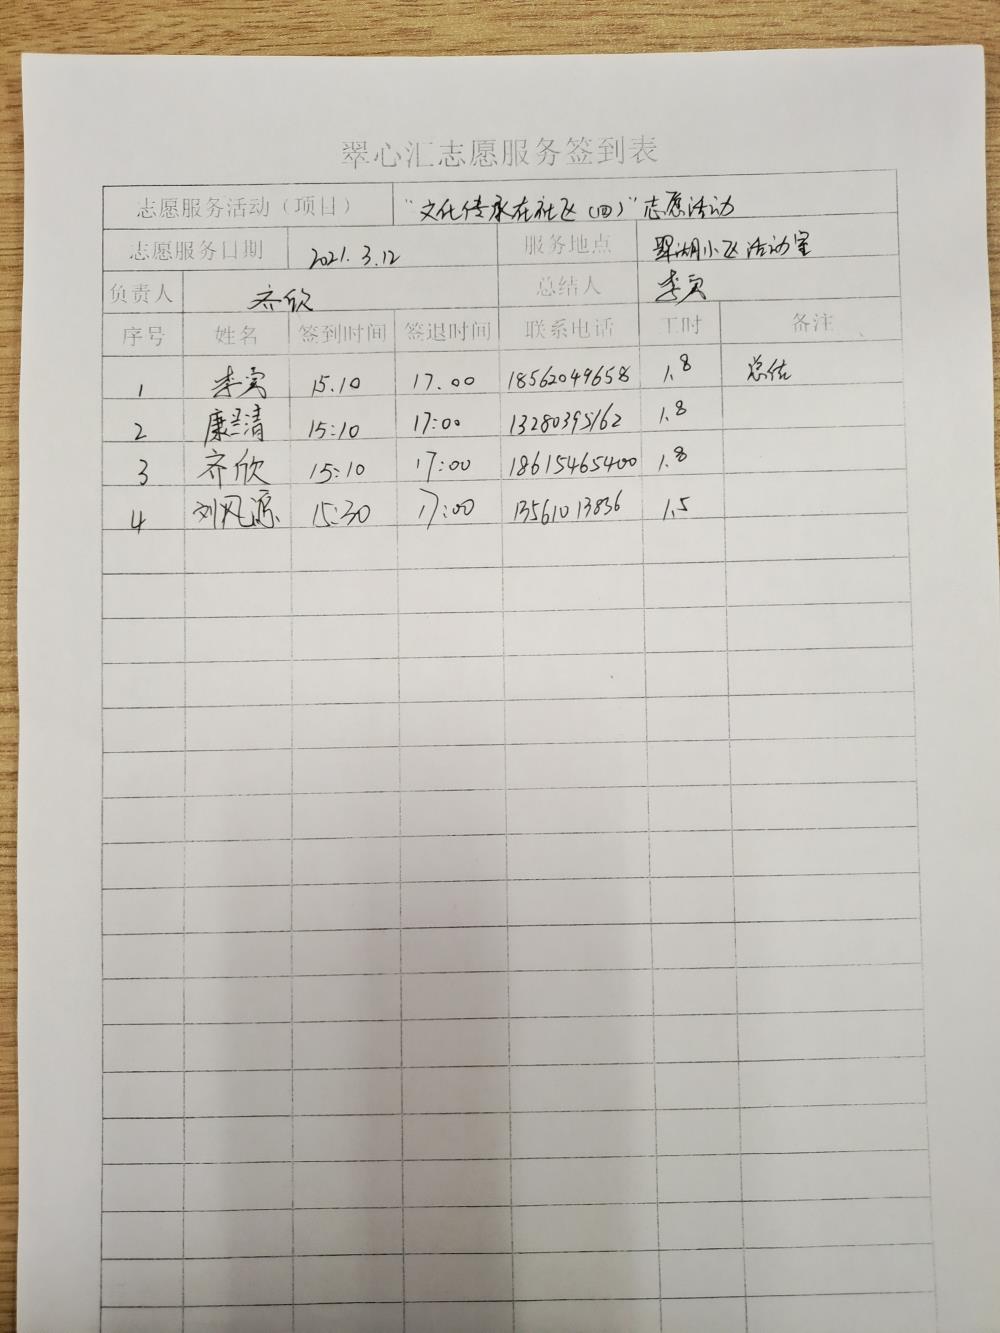 翠心汇志愿服务签到表
志愿服务活动（项目） “文化传承在社区（四）”志愿活动
志愿服务日期 2021.3.12 服务地点 翠湖小区活动室
负责人 齐欣 总结人 李寅
序号 姓名 签到时间 签退时间 联系电话 工时 备注
1 李寅 15.10 17.00 18562049658 1.8 总结
2 康清 15:10 17:00 13280395162 1.8
3 齐欣 15:10 17:00 18615465400 1.8
4 刘风源 15:30 17:00 13561013836 1.5